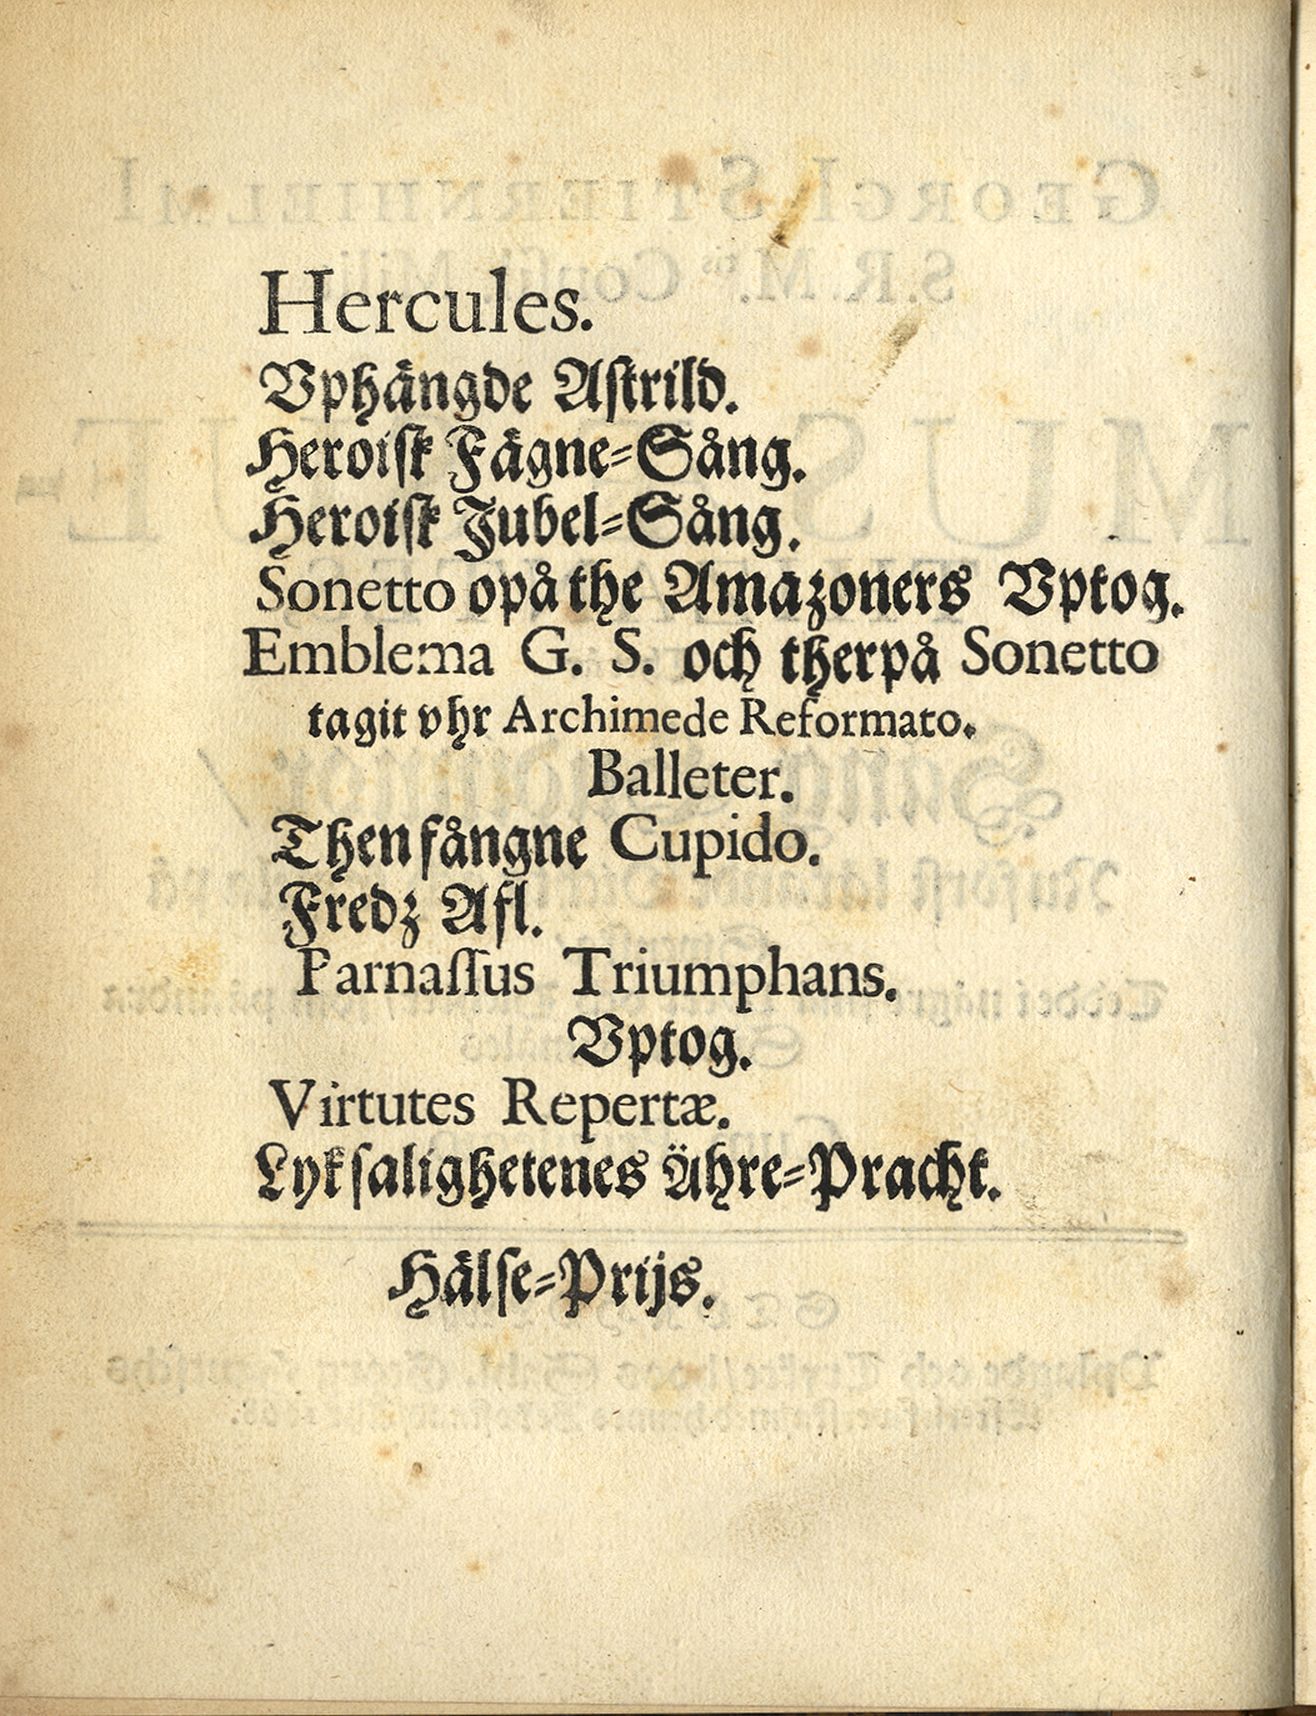 Hercules.
Vphängde Aſtrild.
Heroiſk Fägne-Sång.
Heroiſk Jubel-Sång.
Sonetto opå the Amazoners Vptog.
Emblema G. S. och therpå Sonetto
tagit vhr Archimede Reformato.
Balleter.
Then fångne Cupido.
Fredz Afl.
Parnaſſus Triumphans.
Vptog.
Virtutes Repertæ.
Lykſalighetenes Ähre-Pracht.
Hälſe-Prijs.